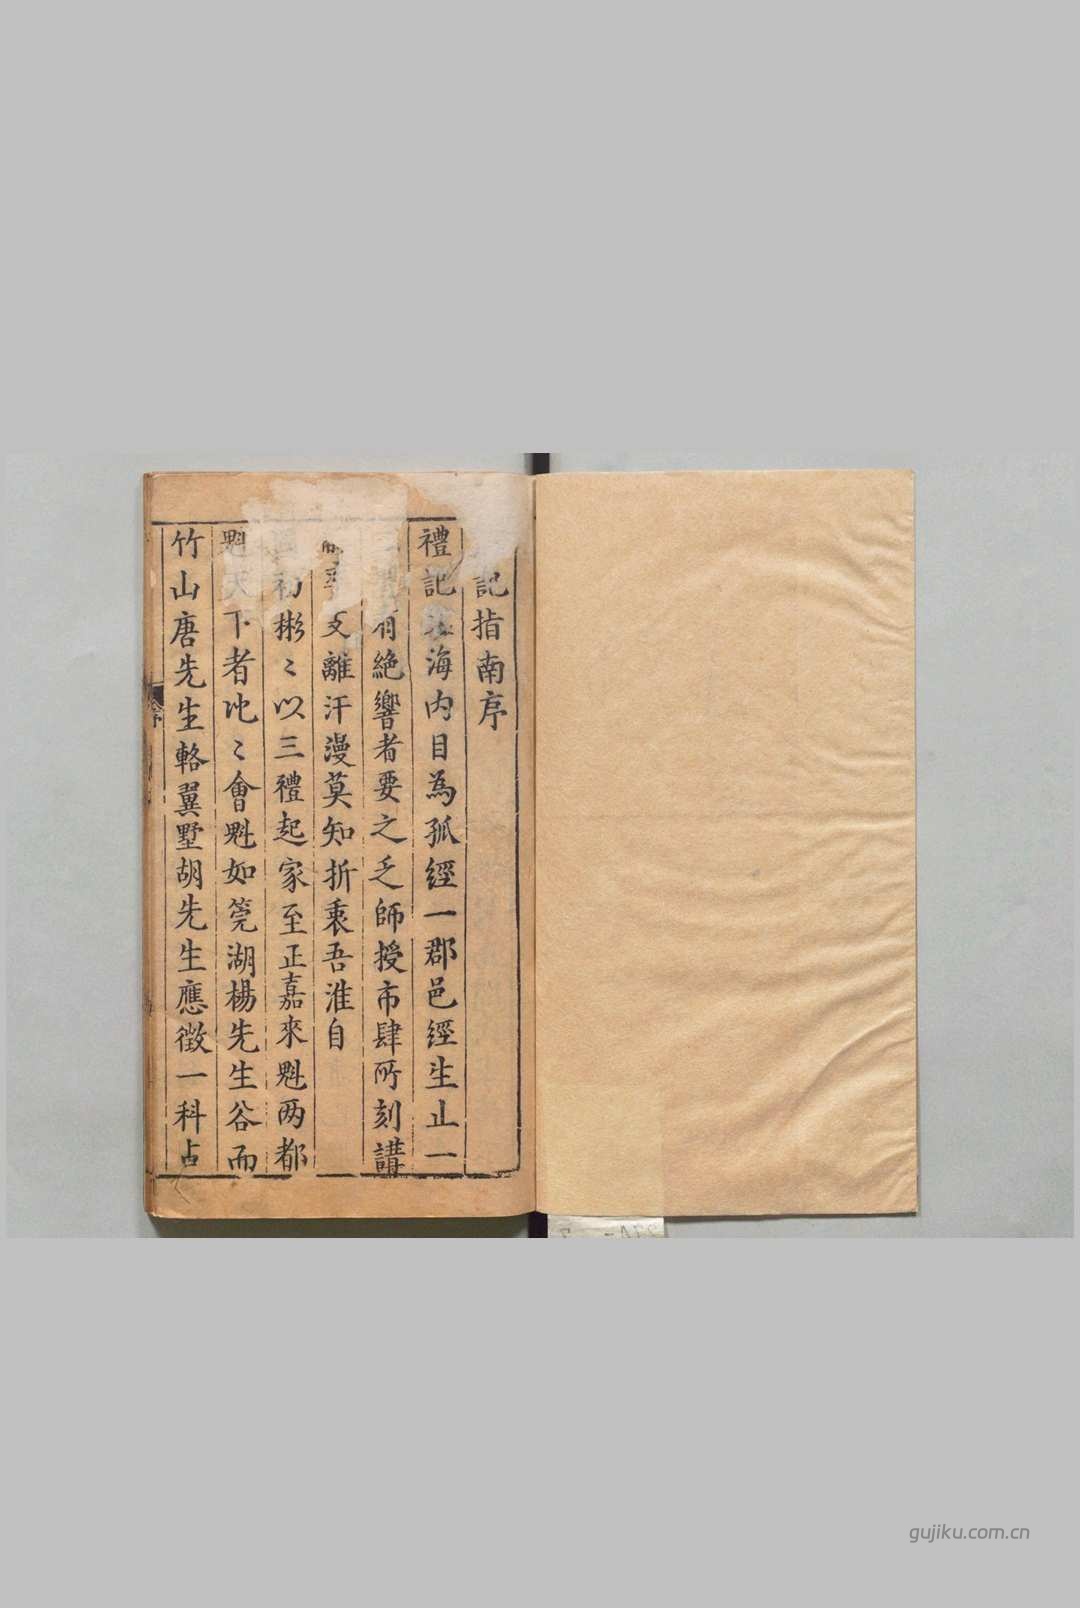 記指南序
禮記海內目為孤經一郡邑經生止一
有絕響者要之乏師授市肆所刻講
支離汗漫莫知折衷吾淮自
初彬〻以三禮起家至正嘉來魁两都
魁天下者比〻會魁如筦湖楊先生谷而
竹山唐先生輅翼墅胡先生應徵一科占
序
gujiku.com.cn